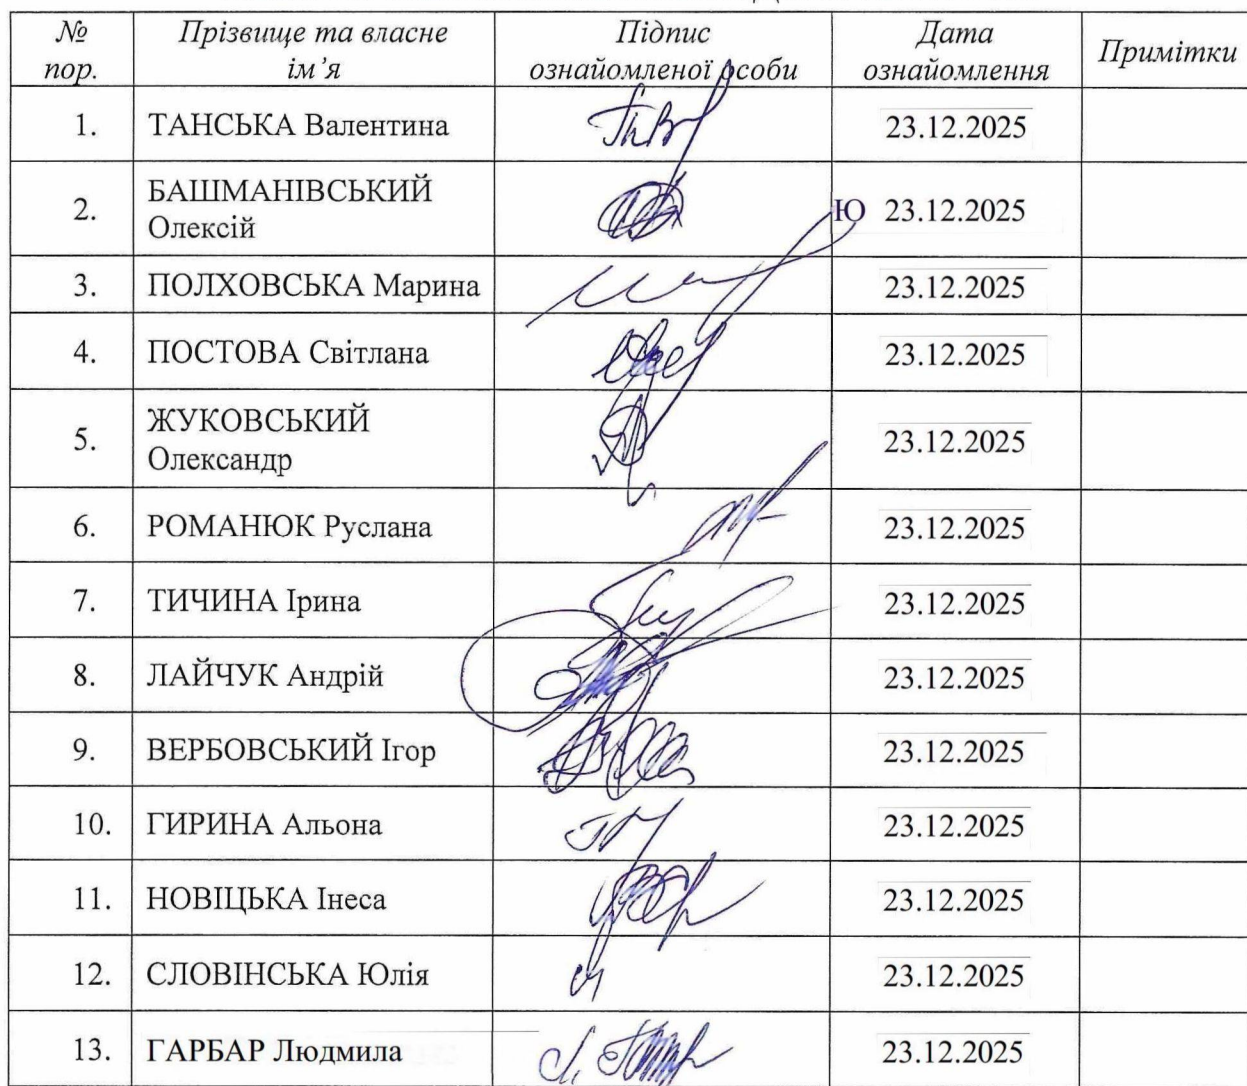 № Прізвище та власне Підпис Дата Примітки
пор. ім’я ознайомленої особи ознайомлення
1. ТАНСЬКА Валентина 23.12.2025
2. БАШМАНІВСЬКИЙ Олексій Ю 23.12.2025
3. ПОЛХОВСЬКА Марина 23.12.2025
4. ПОСТОВА Світлана 23.12.2025
5. ЖУКОВСЬКИЙ Олександр 23.12.2025
6. РОМАНЮК Руслана 23.12.2025
7. ТИЧИНА Ірина 23.12.2025
8. ЛАЙЧУК Андрій 23.12.2025
9. ВЕРБОВСЬКИЙ Ігор 23.12.2025
10. ГИРИНА Альона 23.12.2025
11. НОВІЦЬКА Інеса 23.12.2025
12. СЛОВІНСЬКА Юлія 23.12.2025
13. ГАРБАР Людмила 23.12.2025